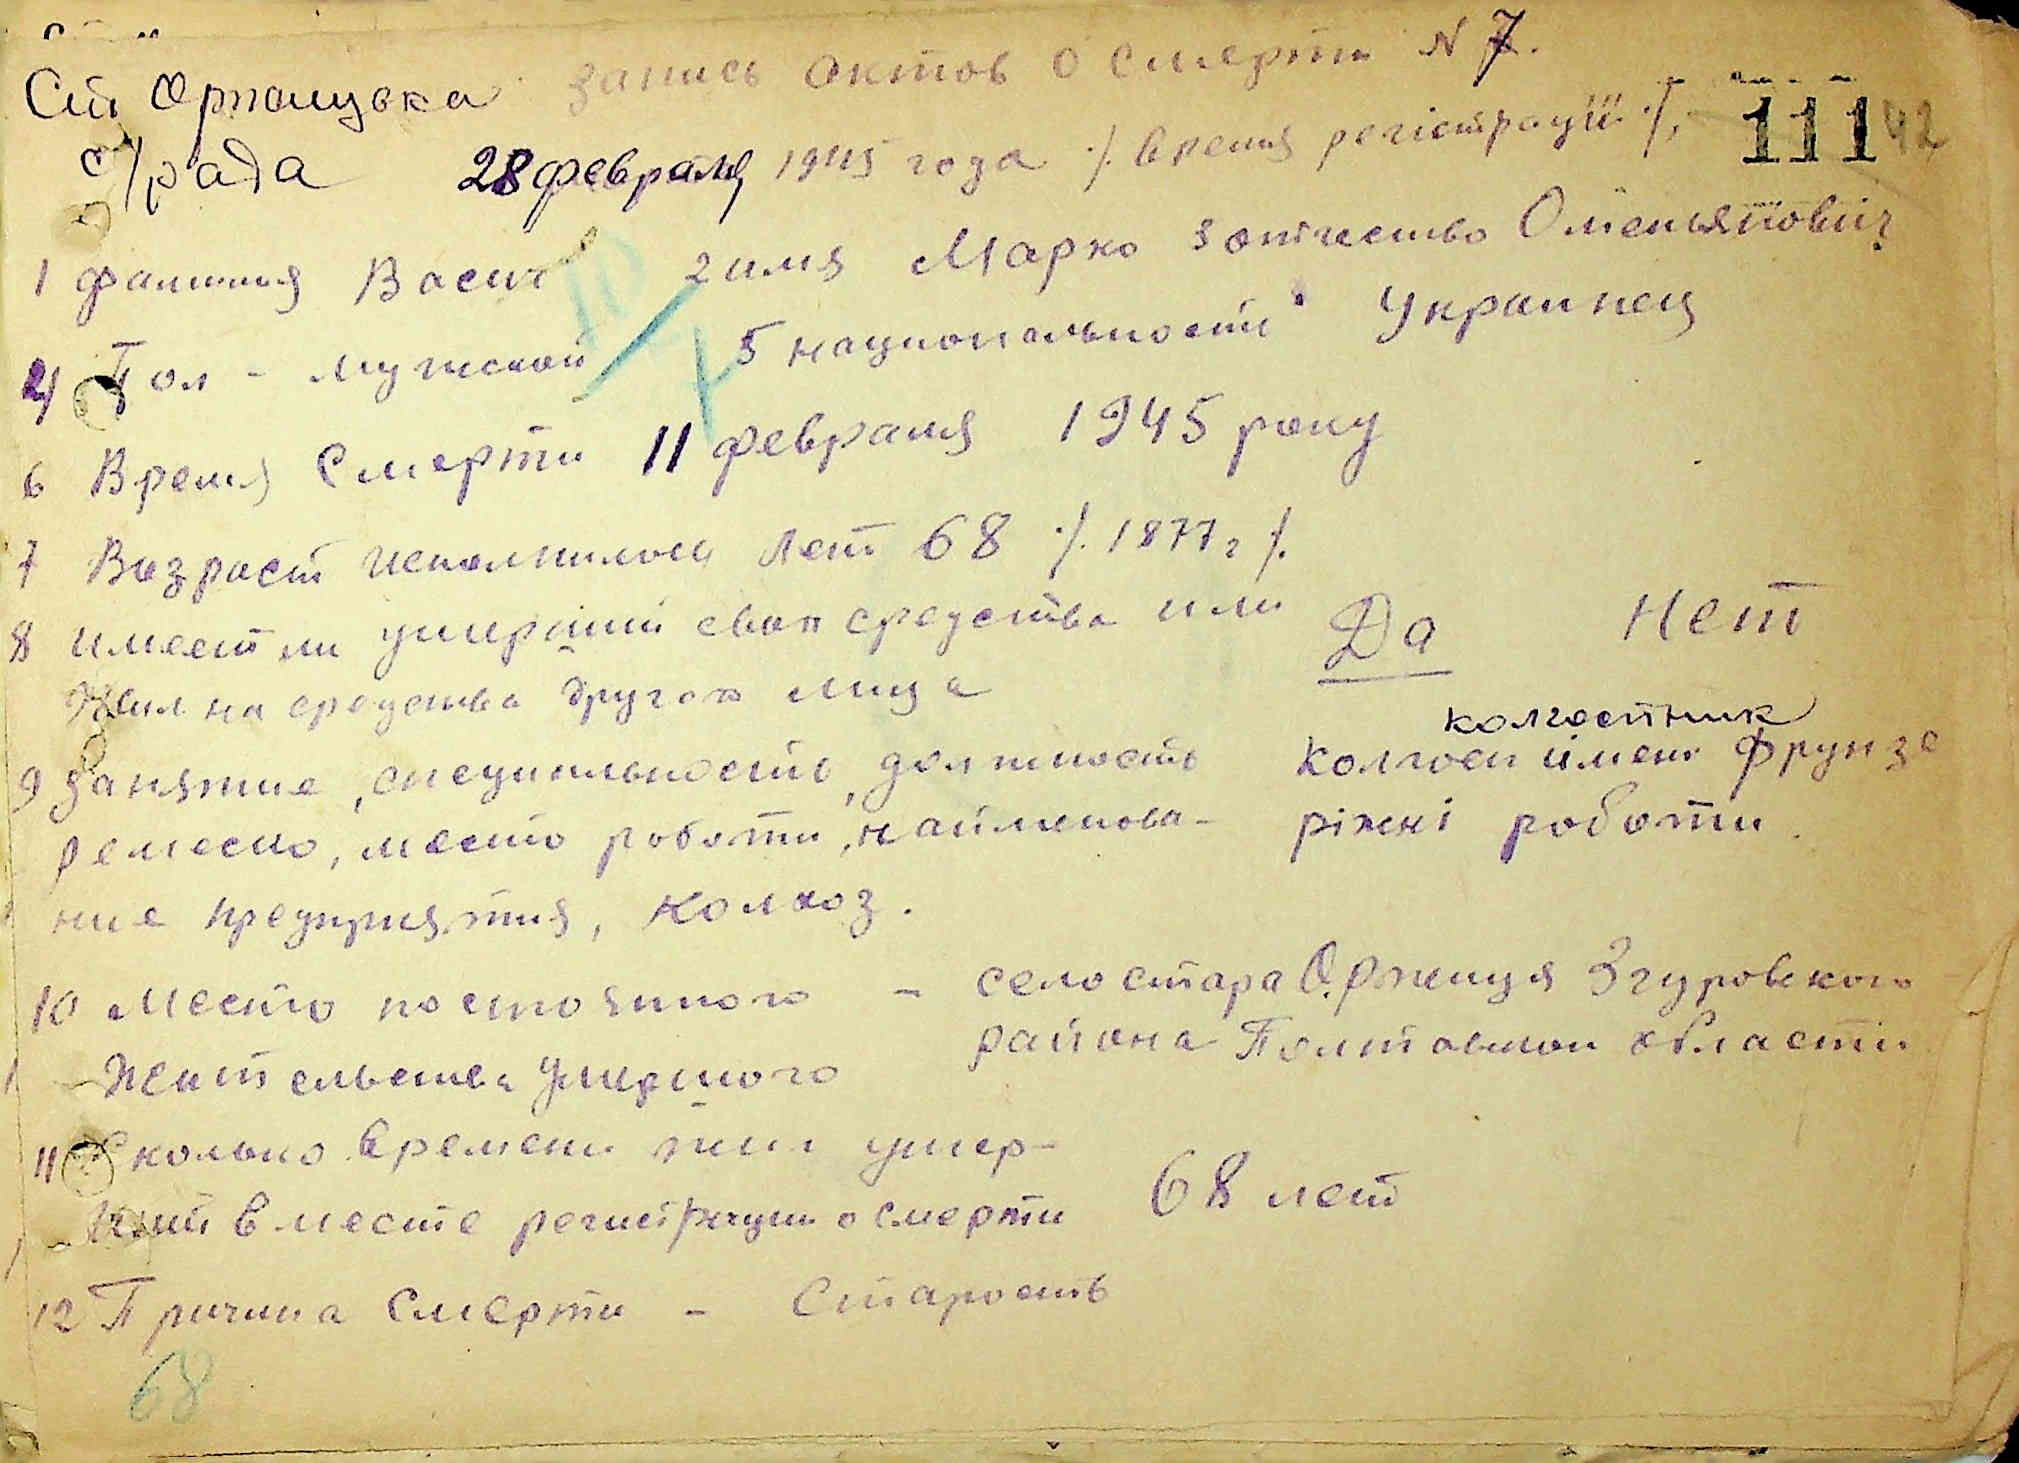 Ст Оржицька запись актов о смерти N 7.
с/рада 28 февраля 1945 года /. время регістрації ./. 111 42
1 фамилия Васич 2 имя Марко 3 отчество Омельянович
4 Пол - мужской 5 национальность Украинец
6 Время Смерти 11 февраля 1945 року
7 Возраст исполнилось лет 68 /. 1877 г /.
8 имеет ли умерший свои средства или Да Нет
Жил на средства другого лица
колгоспник
9 Занятие, специальность, должность колгосп имени Фрунзе
ремесло, место работи, наименова- ріжні роботи.
ние предприятия, колхоз.
10 Место постоянного - село стара Оржиця Згуровского
района Полтавской области
Жительства умершого
11 Сколько времени жил умер-
ший в месте регистрации о смерти 68 лет
12 Причина Смерти - Старость
68